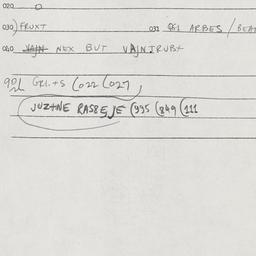 020 O
030) FRUXT 031 §§1 ARBES / BEA
040 VAJN NEX BUT VAJNTRUBT
901 GRI.+S (022 (027)
JUZ+NE RASBEJE (995 (849 (111